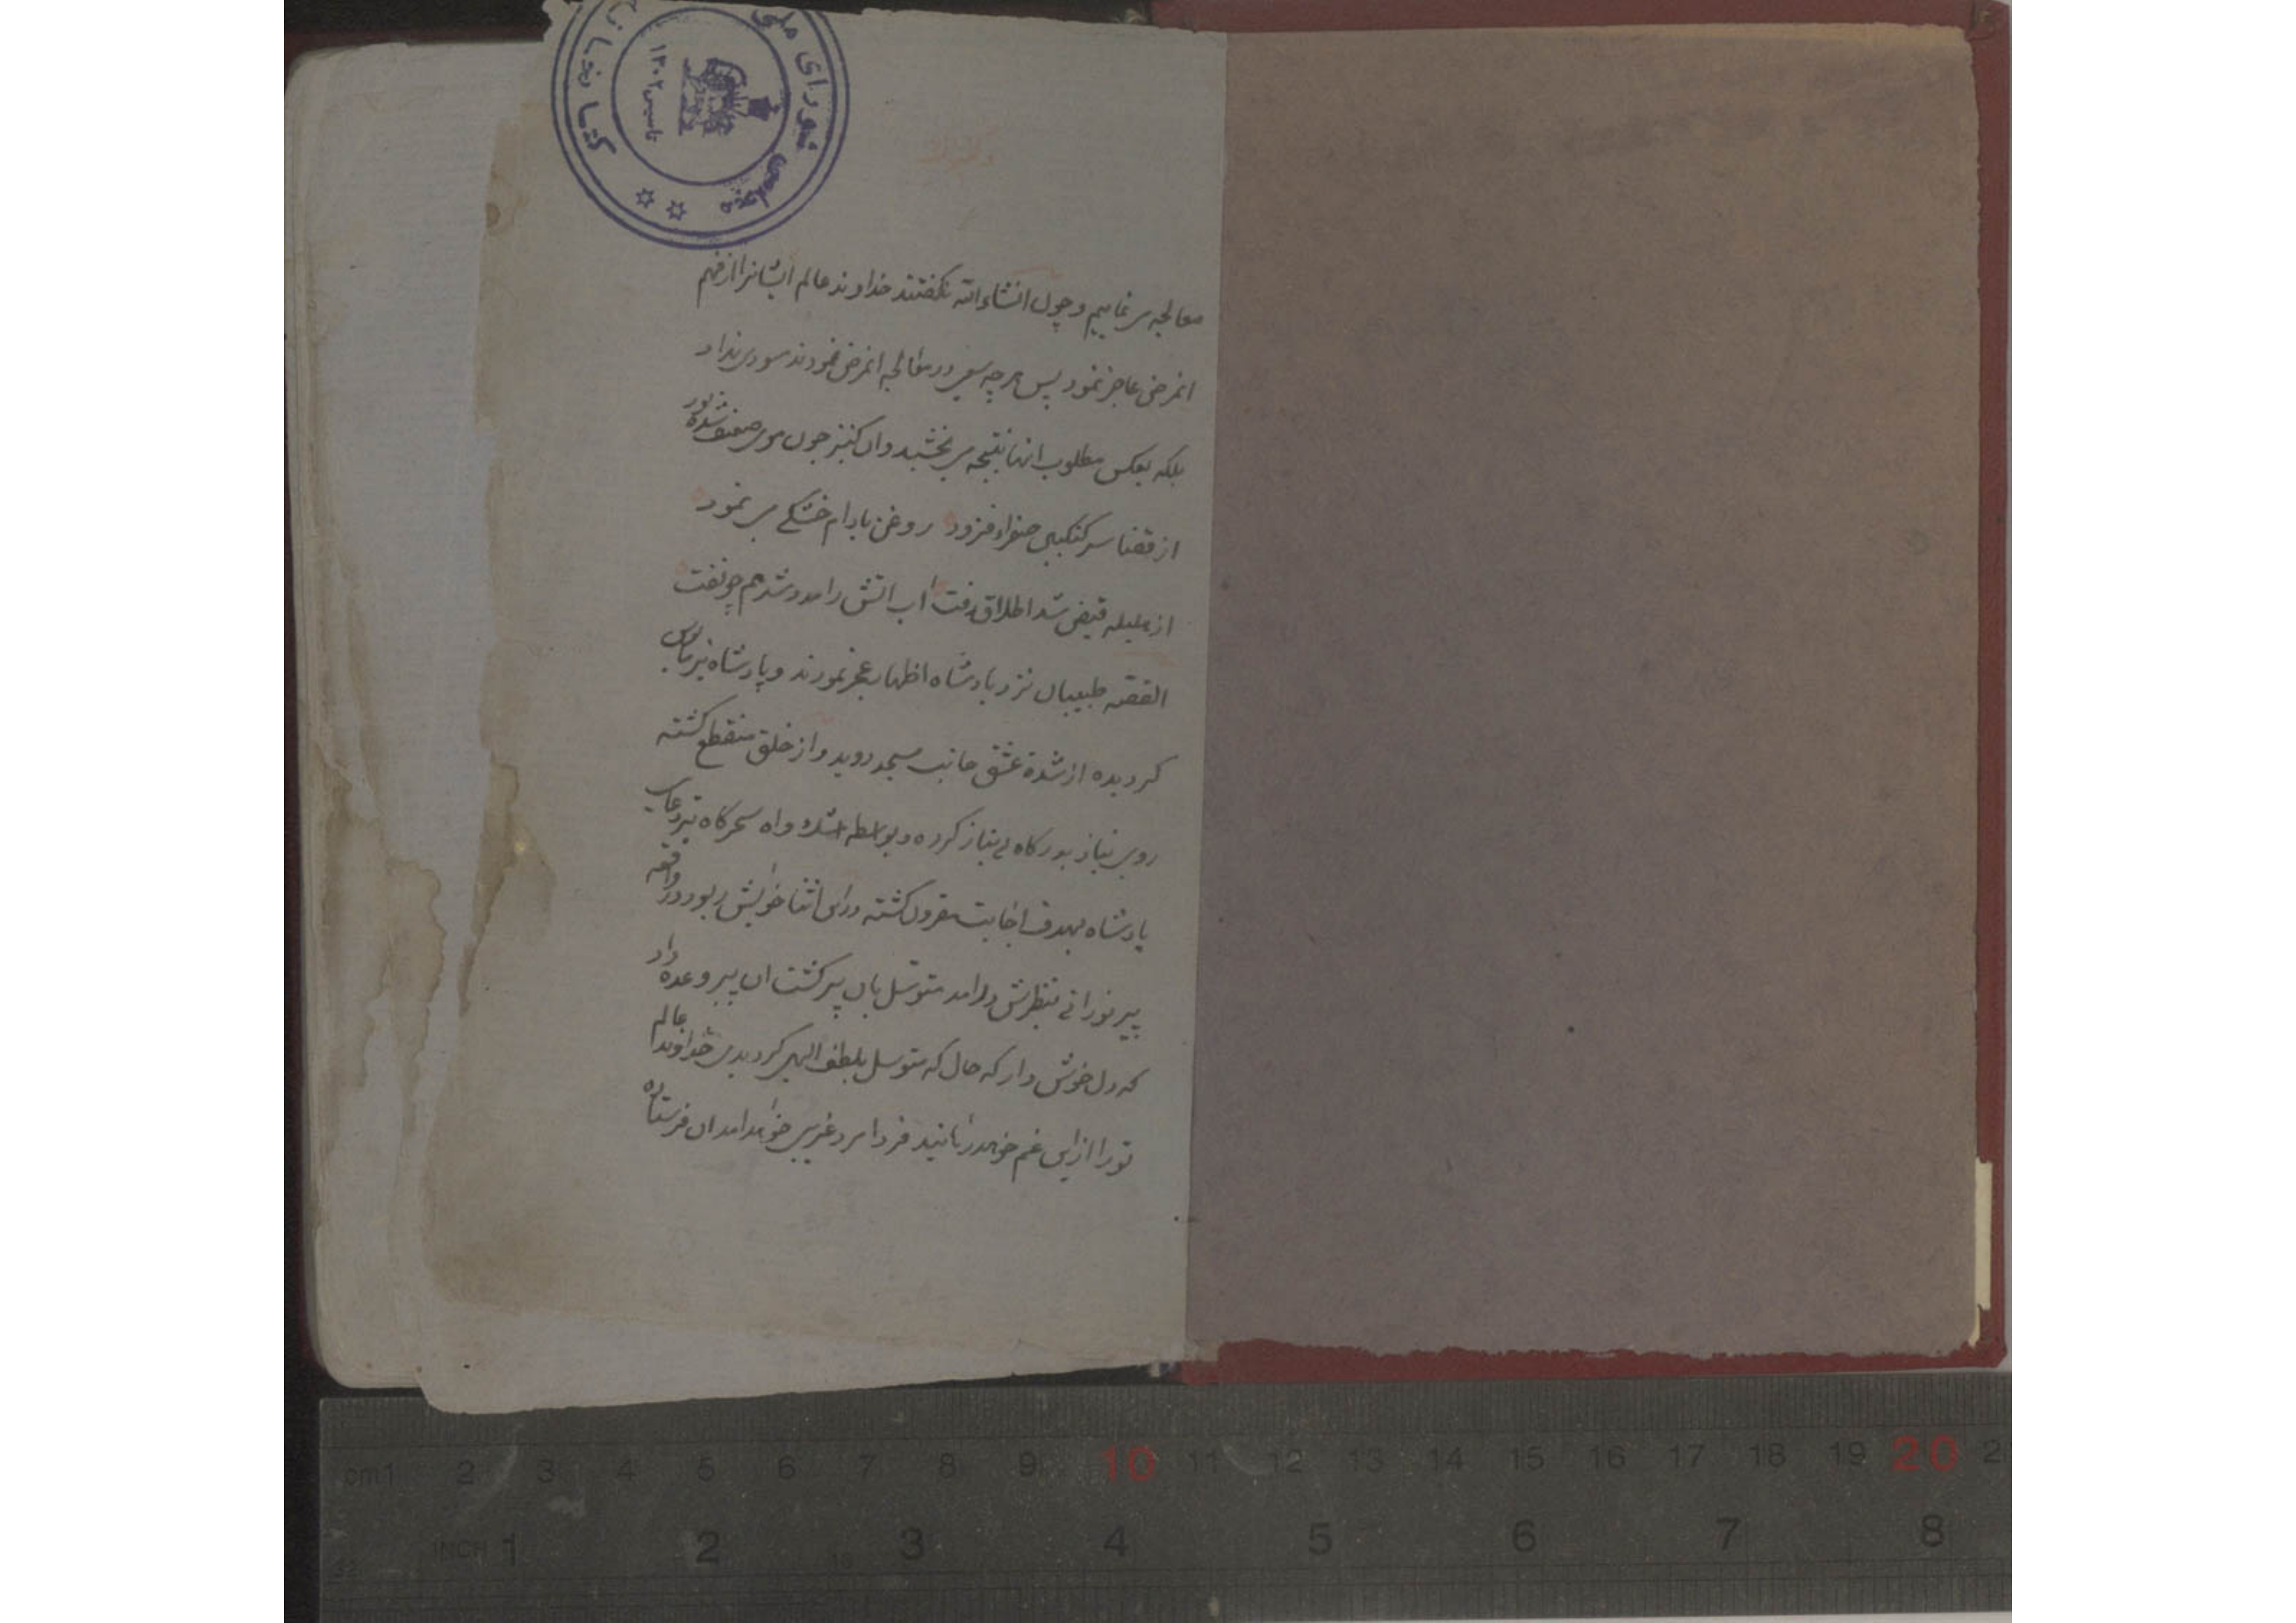 کتابخانه
مجلس شورای ملی
تاسیس ۱۳۰۲
معالجه می نماییم و چون انشاءالله نکفتند خداوند عالم ایشانرا از فهم
انمرض عاجز نمود پس هرچه سعی در معالجه انمرض نمودند سودی نداد
بلکه بعکس مطلوب انها نتیجه می بخشید وان کنیز چون موی ضعیف شده بود
از قضا سرکنکبین صفرا فزود روغن بادام خشکی می نمود
از هلیله قبض شد اطلاق رفت اب اتش را مدد شد هم چو نفت
القصه طبیبان نزد پادشاه اظهار عجز نمودند و پادشاه نیز مایوس
کردیده از شدة عشق جانب مسجد دوید و از خلق منقطع کشته
روی نیاز بدرکاه بی نیاز کرده و بواسطه اشک و اه سحرکاه تیر دعای
پادشاه بهدف اجابت مقرون کشته دراین اثنا خوابش ربود در واقعه
پیر نورانی بنظرش درامد متوسل بان پیر کشت ان پیر وعده داد
که دل خوش دار که حال که متوسل بلطف الهی کردیدی خداوند عالم
تو را ازاین غم خواهد رهانید فردا مرد غریبی خواهد امد ان فرستاده
cm1 2 3 4 5 6 7 8 9 10 11 12 13 14 15 16 17 18 19 20
INCH 1 2 3 4 5 6 7 8
32